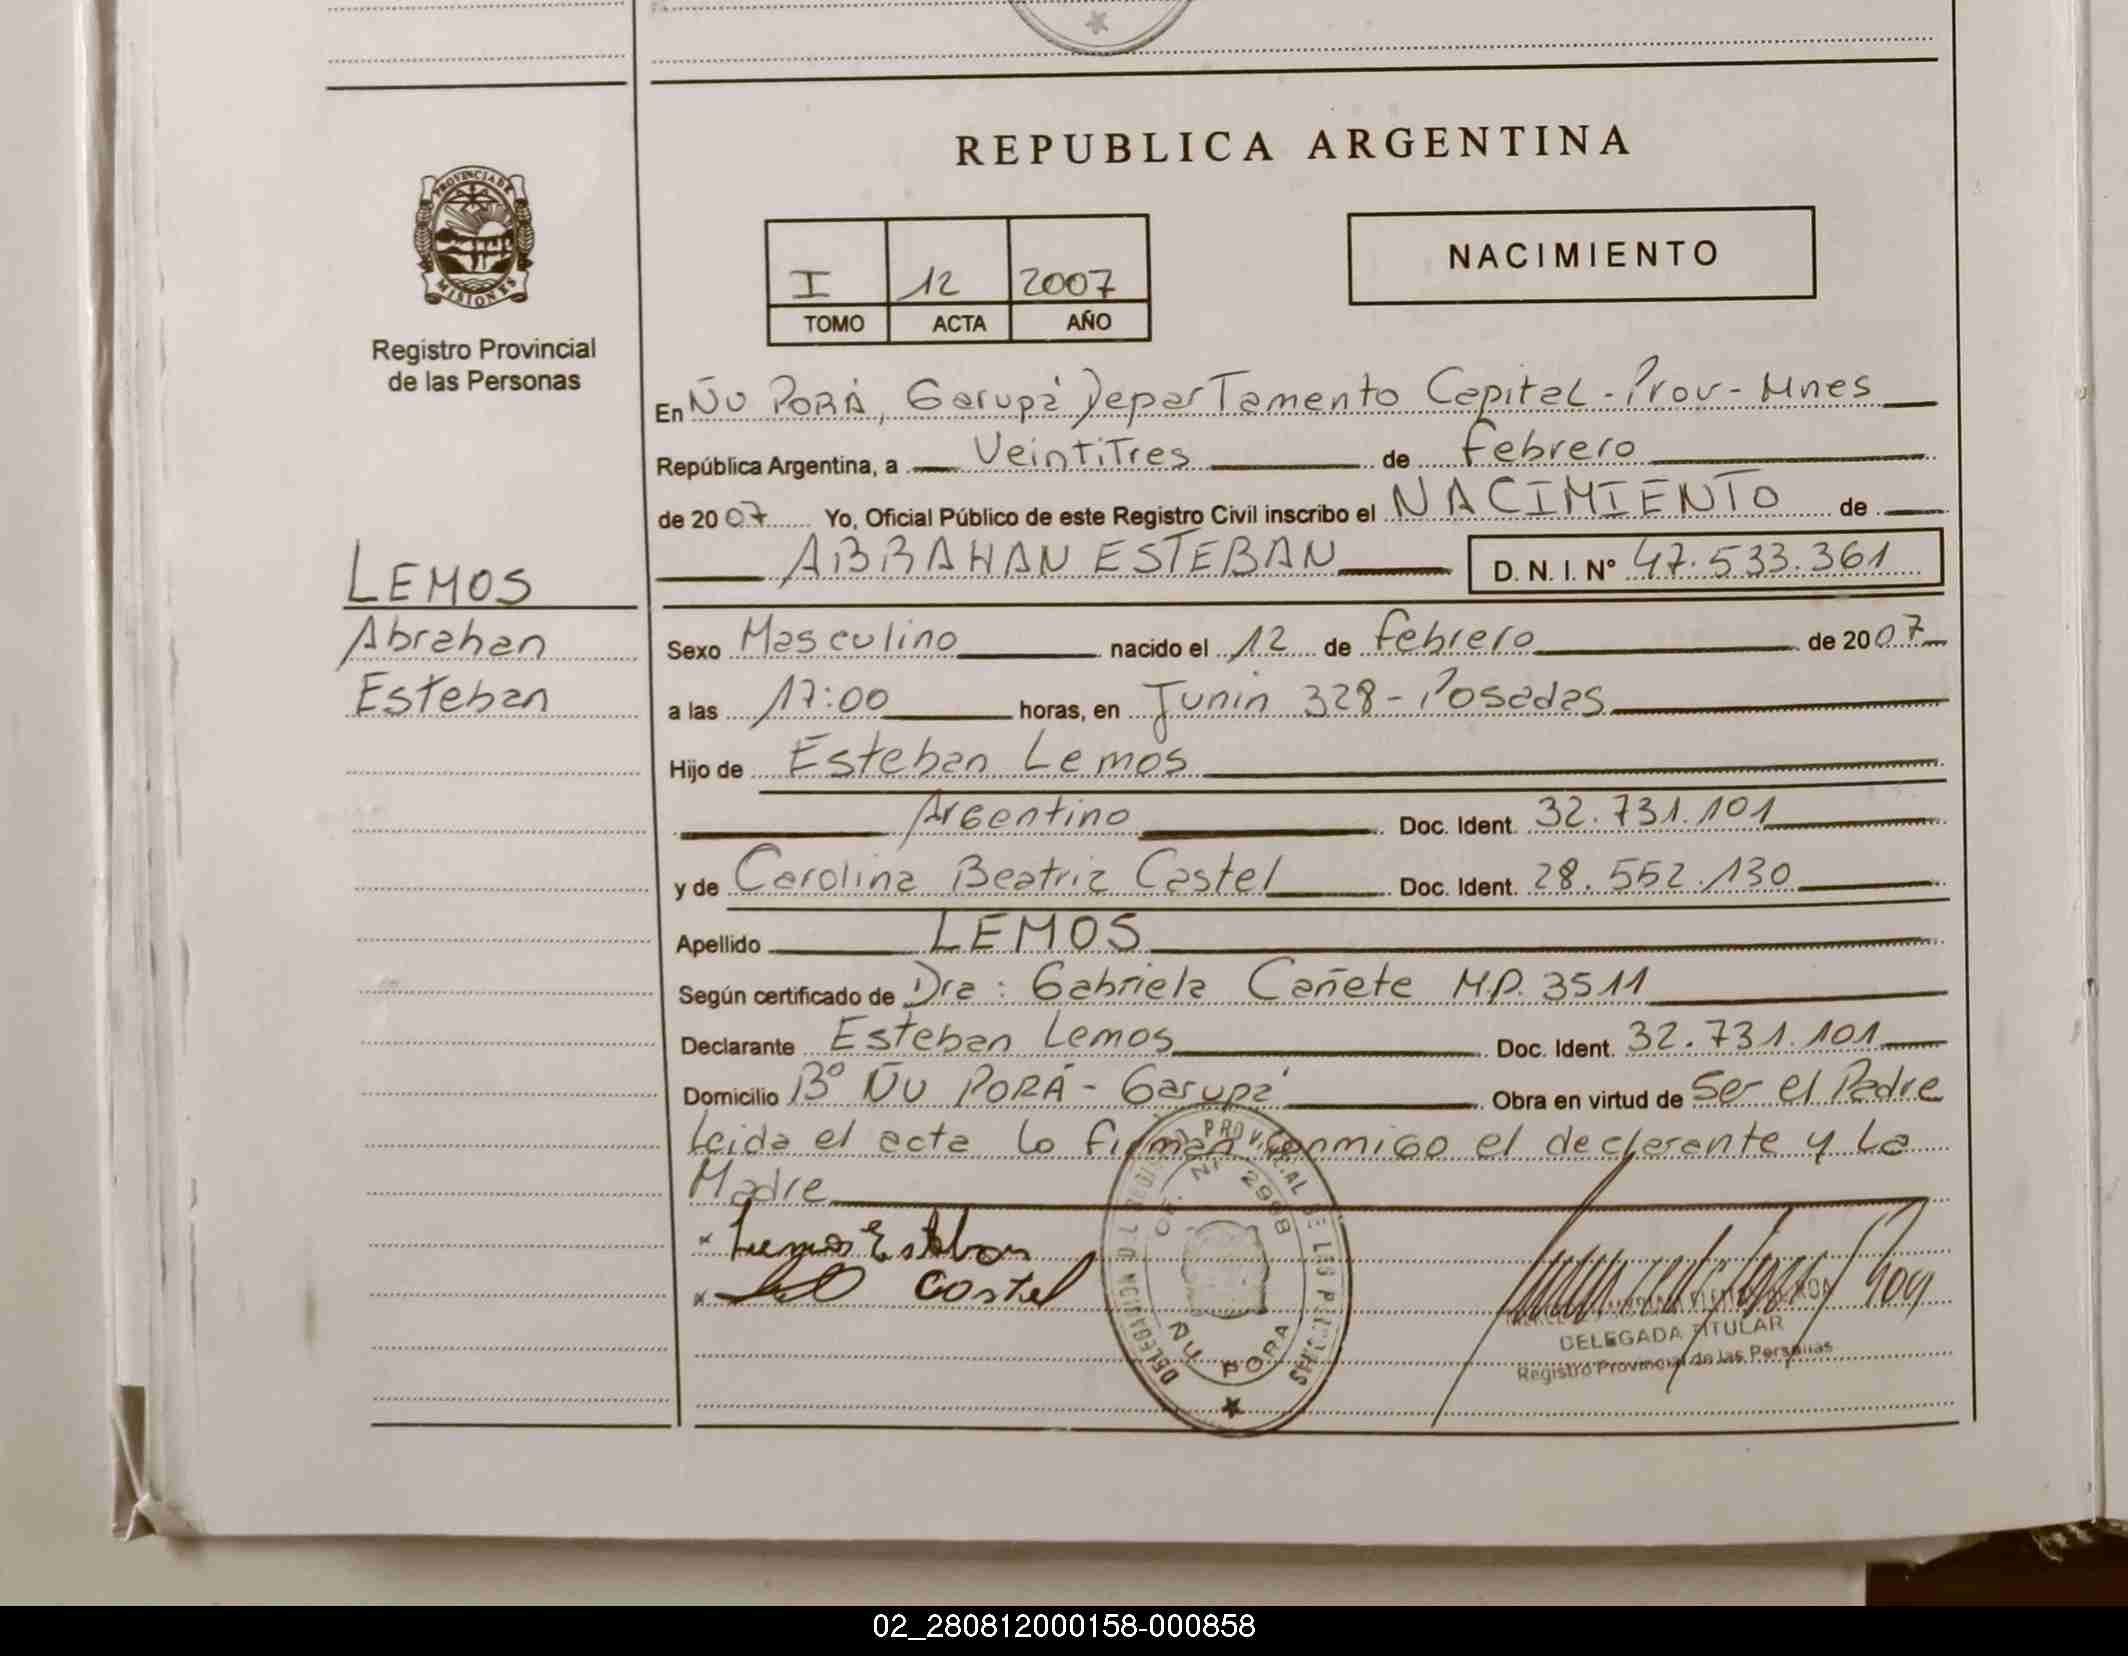 REPUBLICA ARGENTINA
PROVINCIA DE
MISIONES
Registro Provincial
de las Personas
I 12 2007
TOMO ACTA AÑO
NACIMIENTO
En Ñu PORÁ, Garupá Departamento Capital - Prov - Mnes
República Argentina, a Veintitres de febrero
de 2007 Yo, Oficial Público de este Registro Civil inscribo el NACIMIENTO de
ABRAHAN ESTEBAN D. N. I. N° 47.533.361
LEMOS
Abrahan
Esteban
Sexo Masculino nacido el 12 de febrero de 2007
a las 17:00 horas, en Junin 328 - Posadas
Hijo de Esteban Lemos
Argentino Doc. Ident. 32.731.101
y de Carolina Beatriz Castel Doc. Ident. 28.552.130
Apellido LEMOS
Según certificado de Dra: Gabriela Cañete M.P. 3511
Declarante Esteban Lemos Doc. Ident. 32.731.101
Domicilio B° ÑU PORÁ - Garupá Obra en virtud de Ser el Padre
Leida el acta lo firman conmigo el declarante y La
Madre
Lemos Esteban
Castel
DELEGACION DEL REGISTRO PROVINCIAL DE LAS PERSONAS
ÑU PORA
DELEGADA TITULAR
Registro Provincial de las Personas
02_280812000158-000858